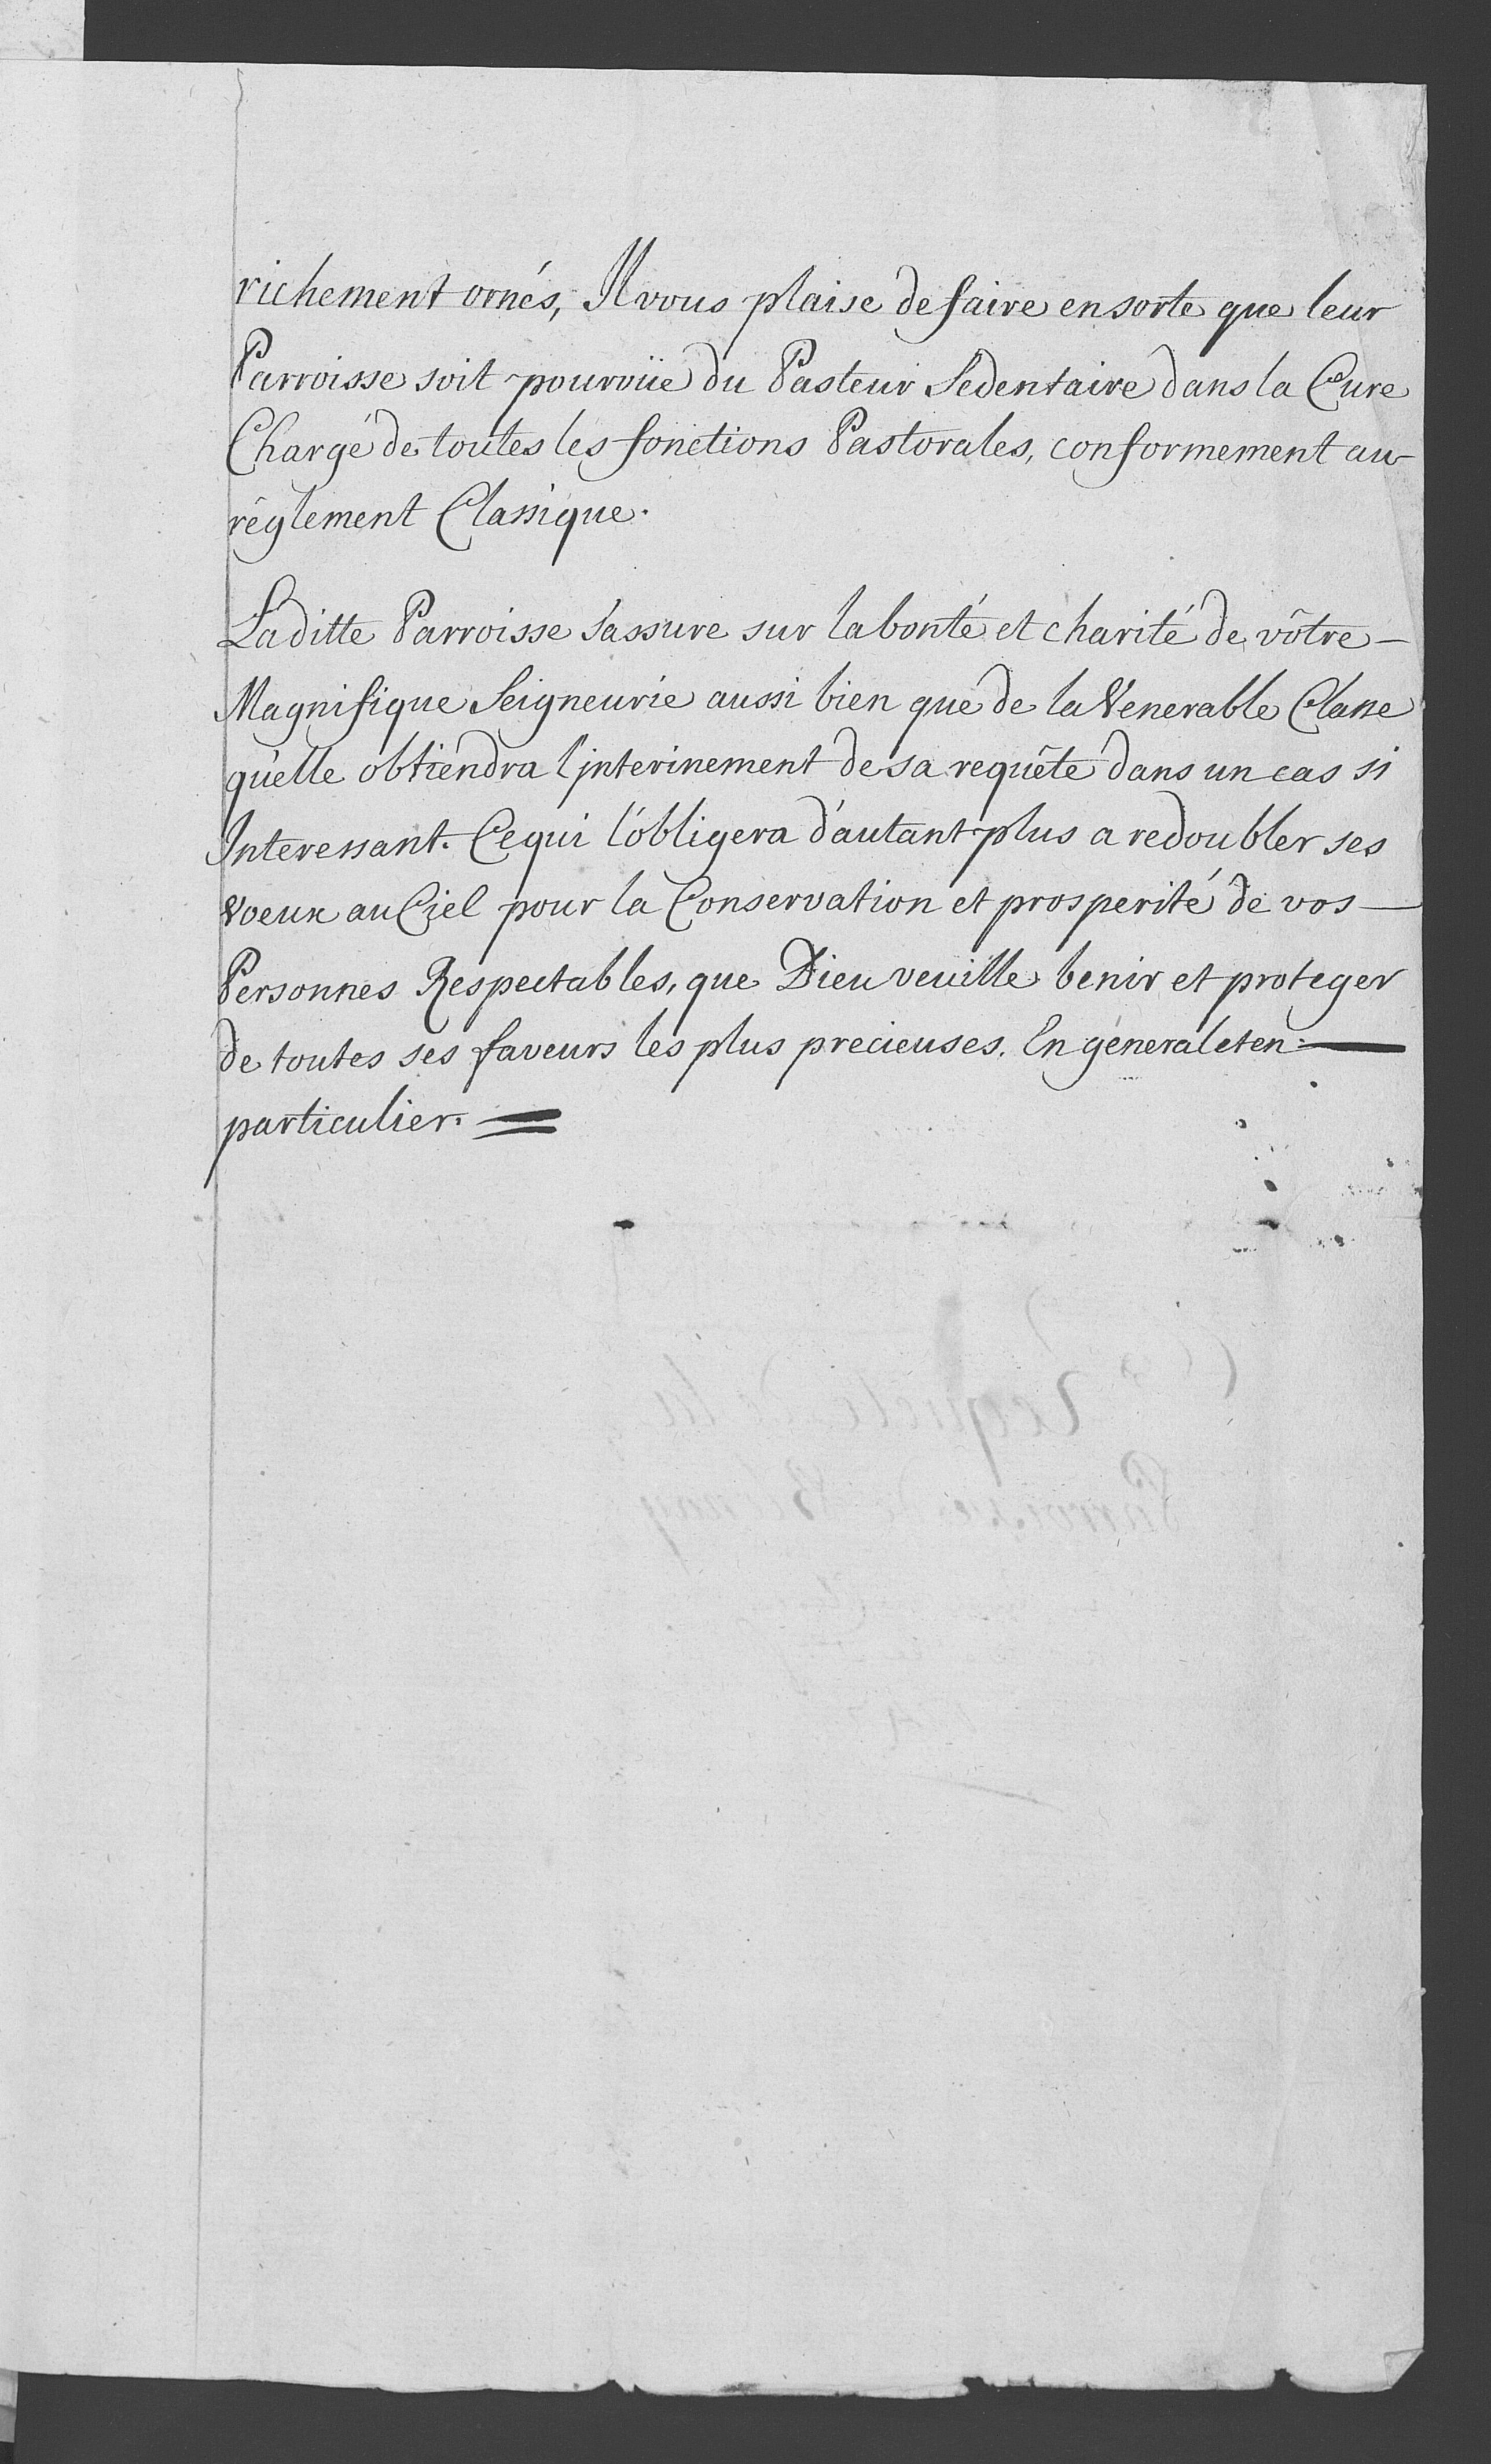 richement ornés, Il vous plaise de faire en sorte que leur
Parroisse soit pourvüe du Pasteur Sedentaire dans la Cure
Chargé de toutes les fonctions Pastorales, conformement au
règlement Classique.
Laditte Parroisse s'assure sur la bonté et charité de vôtre –
Magnifique Seigneurie aussi bien que de la Venerable Classe
qu'elle obtiendra l'jnterinement de sa requête dans un cas si
Interessant. Ce qui l'obligera d'autant plus a redoubler ses
voeux au Ciel pour la Conservation et prosperité de vos —
Personnes Respectables, que Dieu veuille benir et proteger
de toutes ses faveurs les plus precieuses. En géneral et en —
particulier. =
Requete de la
Parroisse de